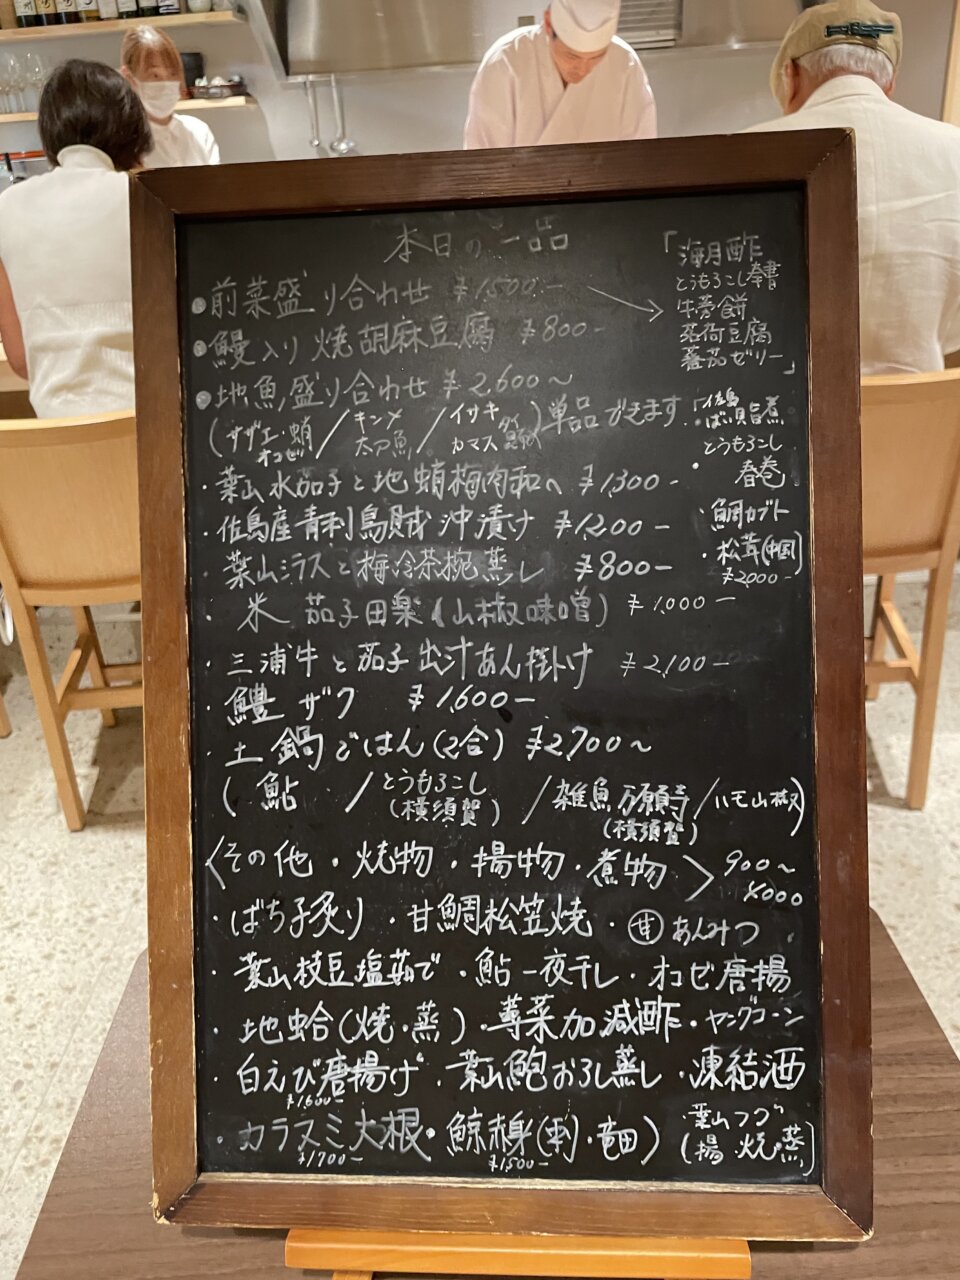 本日の一品
前菜盛り合わせ ¥1,500-
「海月酢
とうもろこし奉書
牛蒡餅
茗荷豆腐
蕃茄ゼリー」
鰻入り焼胡麻豆腐 ¥800-
地魚盛り合わせ ¥2,600〜
(サザエ・蛸/キンメ/イサキ
オコゼ 太刀魚 カマス)単品できます
・葉山水茄子と地蛸梅肉和へ ¥1,300-
・佐島産青利烏賊沖漬け ¥1,200-
・葉山シラスと梅冷茶椀蒸し ¥800-
・米茄子田楽(山椒味噌) ¥1,000-
・三浦牛と茄子出汁あん掛け ¥2,100-
・鱧ザク ¥1,600-
・土鍋ごはん(2合) ¥2,700〜
(鮎/とうもろこし(横須賀)/雑魚万願寺(横須賀)/ハモ山椒)
「佐島
ばい貝旨煮
・とうもろこし
春巻
・鯛カブト
・松茸(中国)
¥2000-
〈その他・焼物・揚物・煮物〉900〜
・ばち子炙り・甘鯛松笠焼・甘あんみつ
・葉山枝豆塩茹で・鮎一夜干し・オコゼ唐揚
・地蛤(焼・蒸)・蓴菜加減酢・ヤングコーン
・白えび唐揚げ・葉山鮑おろし蒸し・凍結酒
¥1600-
・カラスミ大根・鯨赤身(刺・竜田)
¥1700- ¥1,500-
・葉山フグ
(揚・焼・蒸)